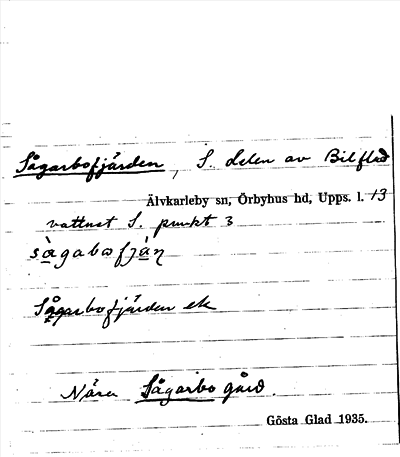 Sågarbofjärden, S. delen av Bilfla
Älvkarleby sn, Örbyhus hd, Upps. l. 13
vattnet S. punkt 3
sàgabofjàṇ
Sågarbofjärden ek
Nära Sågarbo gård.
Gösta Glad 1935.